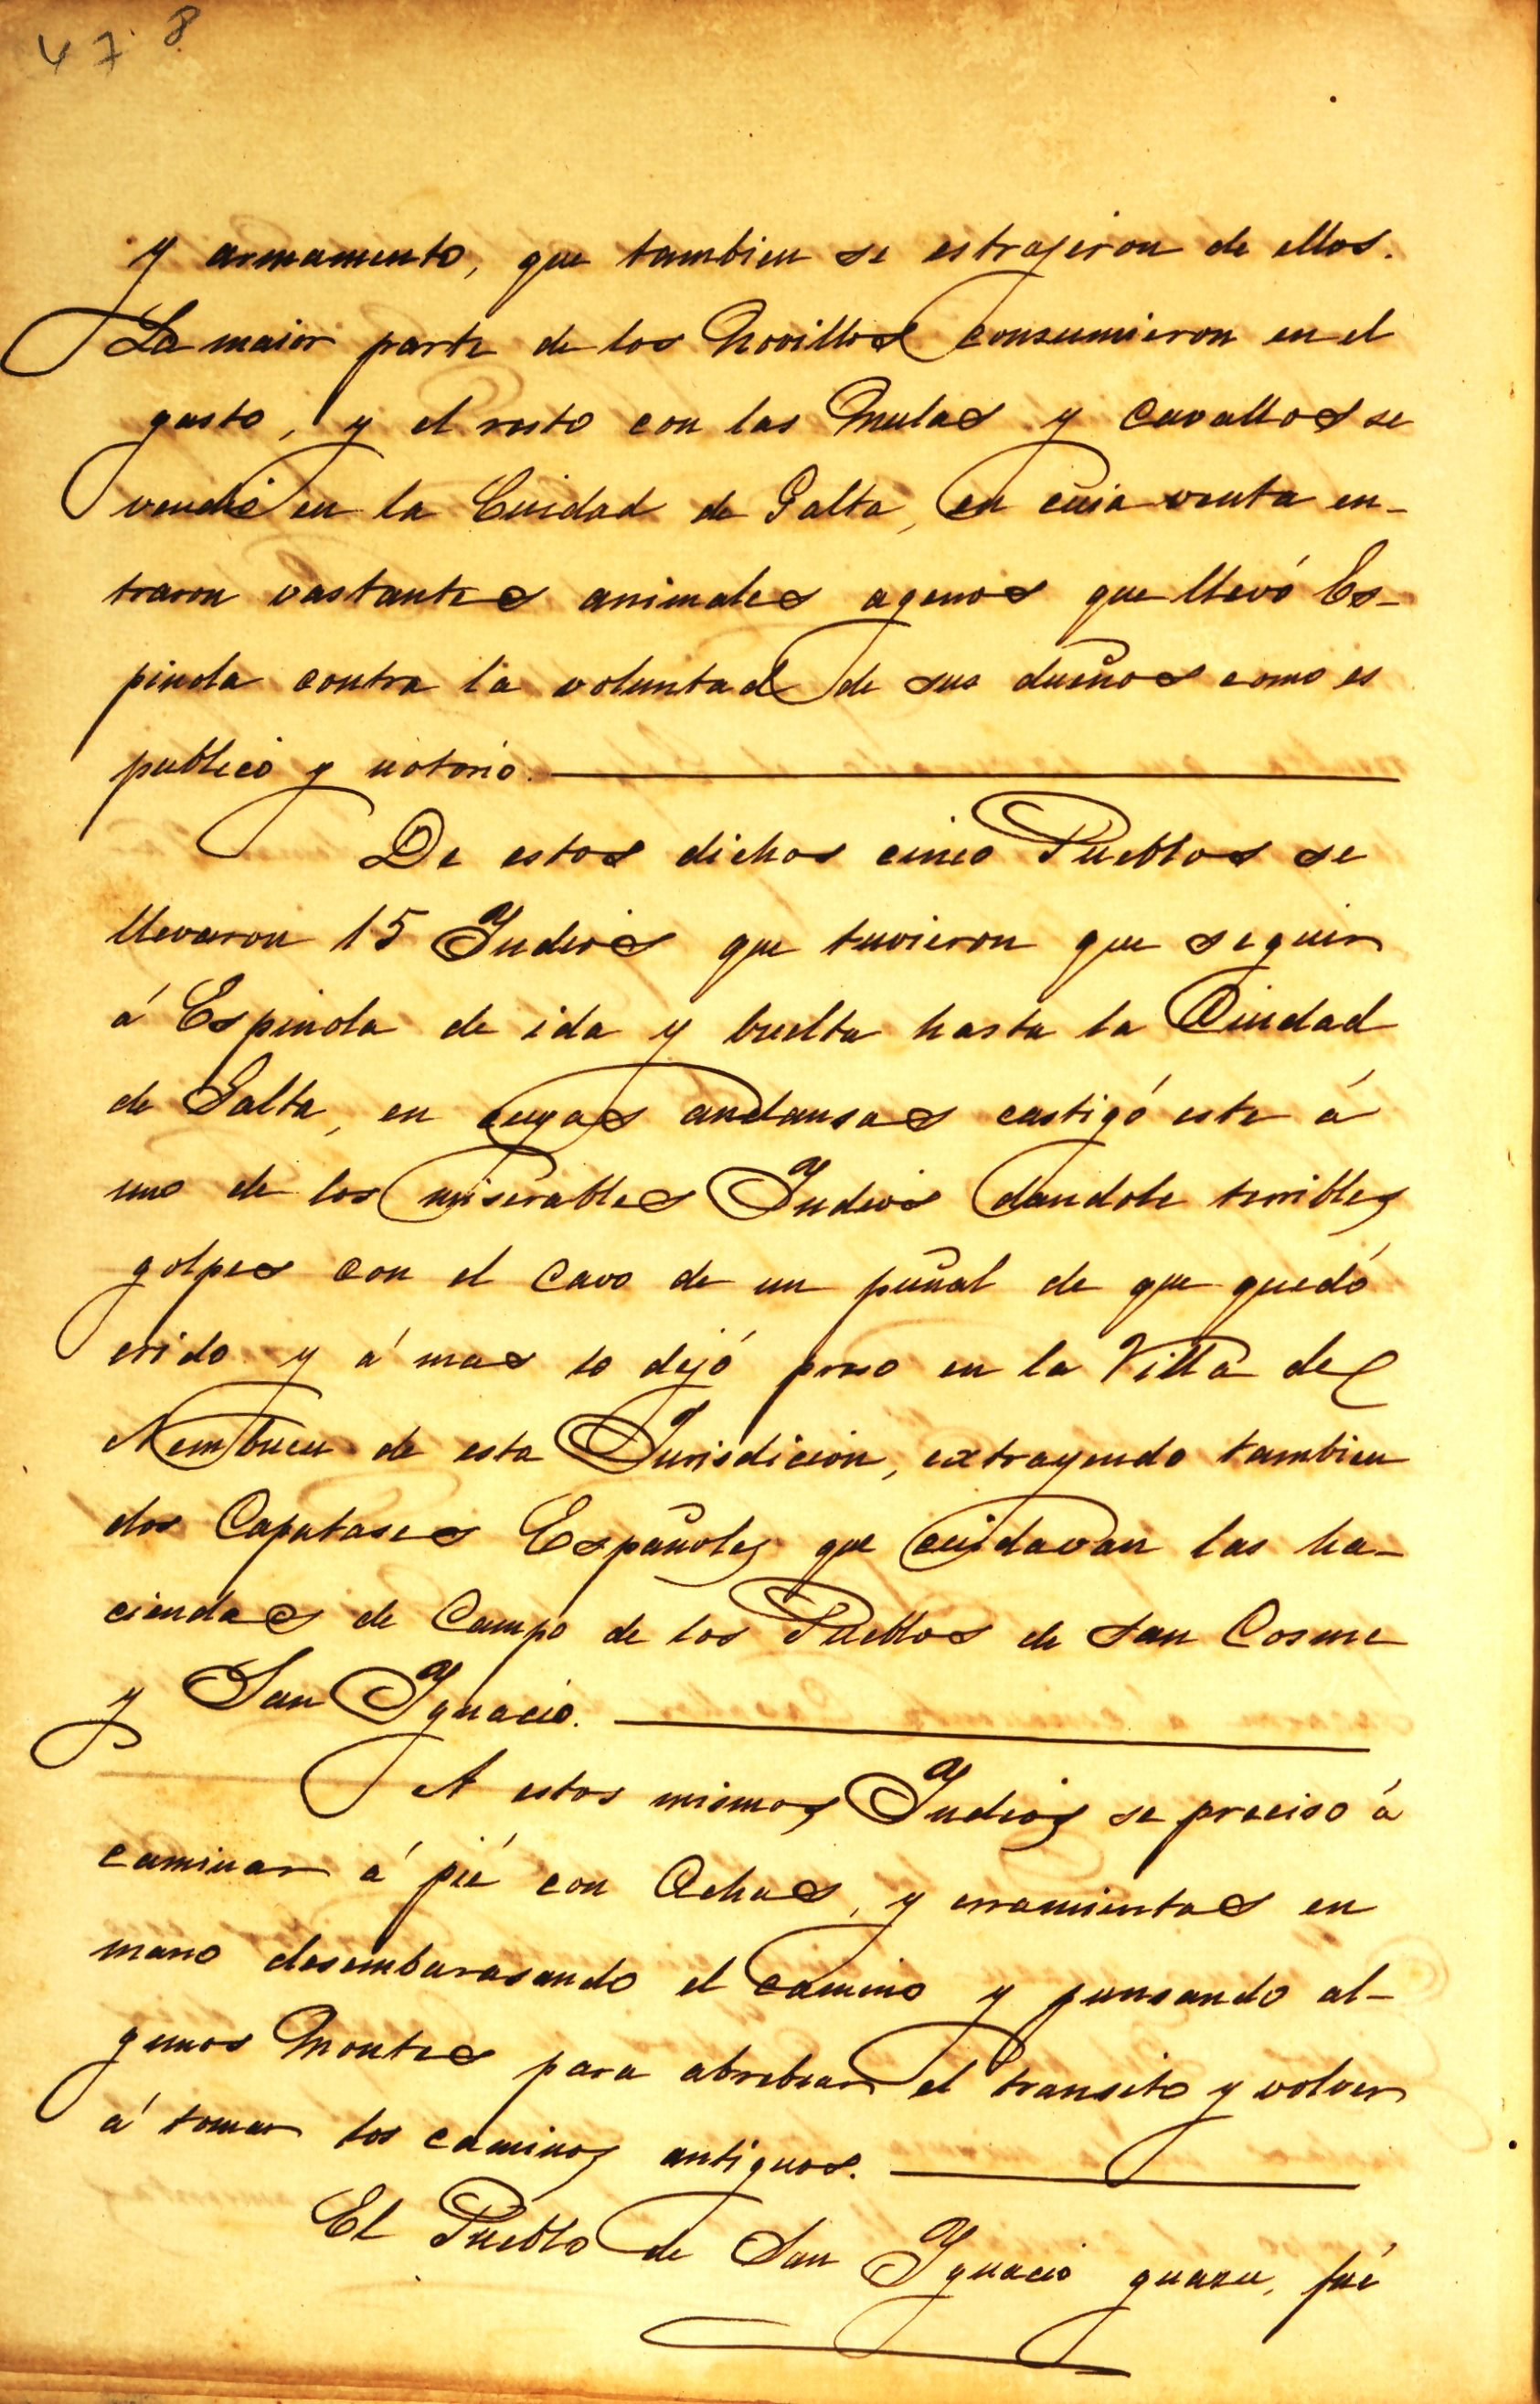 47. 8
y armamento, que tambien se estrageron de ellos.
La maior parte de los Novillos consumieron en el
gasto, y el resto con las Mulas y cavallos se
vendió en la Cuidad de Salta, en cuia venta en-
traron vastantes animales agenos que llevó Es-
pinola contra la voluntad de sus dueños como es
publico y notorio.
De estos dichos cinco Pueblos se
llevaron 15 Yndios que tuvieron que seguir
á Espinola de ida y buelta hasta la Ciudad
de Salta, en cuyas andansas castigó este á
uno de los miserables Yndios dandole terribles
golpes con el cavo de un puñal de que quedó
erido y á mas lo dejó preso en la Villa de
Nembucu de esta Jurisdicion, extrayendo tambien
dos Capatases Españoles que cuidavan las ha-
ciendas de Campo de los Pueblos de San Cosme
y San Ygnacio.
A estos mismos Yndios se preciso á
caminar á pié con Achas, y erramientas en
mano desembarasando el camino y punsando al-
gunos Montes para abrebiar el transito y volver
á tomar los caminos antiguos.
El Pueblo de San Ygnacio guazu, fué